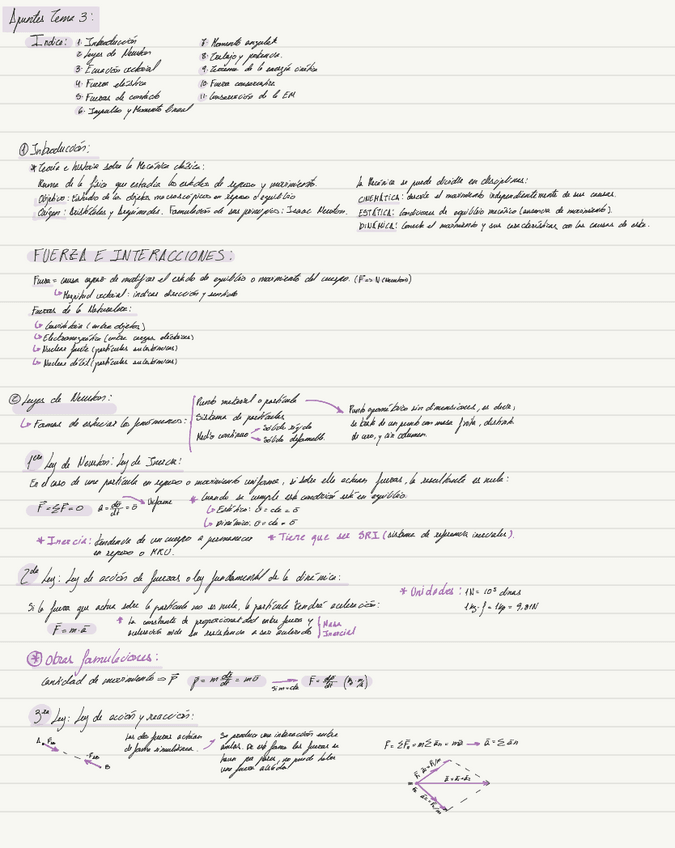 Apuntes Tema 3:
Índice: 1. Introducción
2. Leyes de Newton
3. Ecuación vectorial
4. Fuerza elástica
5. Fuerzas de contacto
6. Impulso y Momento lineal
7. Momento angular
8. Trabajo y potencia.
9. Teorema de la energía cinética
10. Fuerza conservativa
11. Conservación de la EM
① Introducción:
* Teoría e historia sobre la Mecánica clásica:
Rama de la física que estudia los estados de reposo y movimiento.
Objetivo: Estudio de los objetos macroscópicos en reposo o equilibrio
Origen: Aristóteles y Arquímedes. Formulación de sus principios: Isaac Newton.
La Mecánica se puede dividir en disciplinas:
CINEMÁTICA: describe el movimiento independientemente de sus causas.
ESTÁTICA: Condiciones de equilibrio mecánico (ausencia de movimiento).
DINÁMICA: Conecta el movimiento y sus características con las causas de este.
FUERZA E INTERACCIONES:
Fuerza = causa capaz de modificar el estado de equilibrio o movimiento del cuerpo. (F => N (Newtons))
↳ Magnitud vectorial: indicar dirección y sentido
Fuerzas de la Naturaleza:
↳ Gravitatoria (entre objetos)
↳ Electromagnética (entre cargas eléctricas)
↳ Nuclear fuerte (partículas subatómicas)
↳ Nuclear débil (partículas subatómicas)
② Leyes de Newton:
↳ Formas de estudiar los fenómenos:
Punto material o partícula
Sistema de partículas
Medio continuo
Sólido rígido
Sólido deformable.
Punto geométrico sin dimensiones, es decir,
se trata de un punto con masa finita, distinta
de cero, y sin volumen.
1era Ley de Newton: Ley de Inercia:
En el caso de una partícula en reposo o movimiento uniforme, si sobre ella actúan fuerzas, la resultante es nula:
F = ΣF = 0 a = dv/dt = 0 Uniforme
* Cuando se cumple esta condición está en equilibrio:
↳ Estático: v = cte = 0
↳ Dinámico: v = cte ≠ 0
* Inercia: tendencia de un cuerpo a permanecer
en reposo o MRU.
* Tiene que ser SRI (sistema de referencia inerciales).
2da Ley: Ley de acción de fuerzas o ley fundamental de la dinámica:
Si la fuerza que actúa sobre la partícula no es nula, la partícula tendrá aceleración:
F = m·a
* La constante de proporcionalidad entre fuerza y
aceleración mide su resistencia a ser acelerado
Masa
Inercial
* Unidades: 1N = 10⁵ dinas
1kg·f = 1kp = 9,81N
* Otras formulaciones:
Cantidad de movimiento => p p = m dr/dt = mv si m=cte F = dp/dt
3era Ley: Ley de acción y reacción:
A
B
Las dos fuerzas actúan
de forma simultánea.
Se produce una interacción entre
ambas. De esta forma las fuerzas se
hacen por pares, no puede haber
una fuerza aislada.